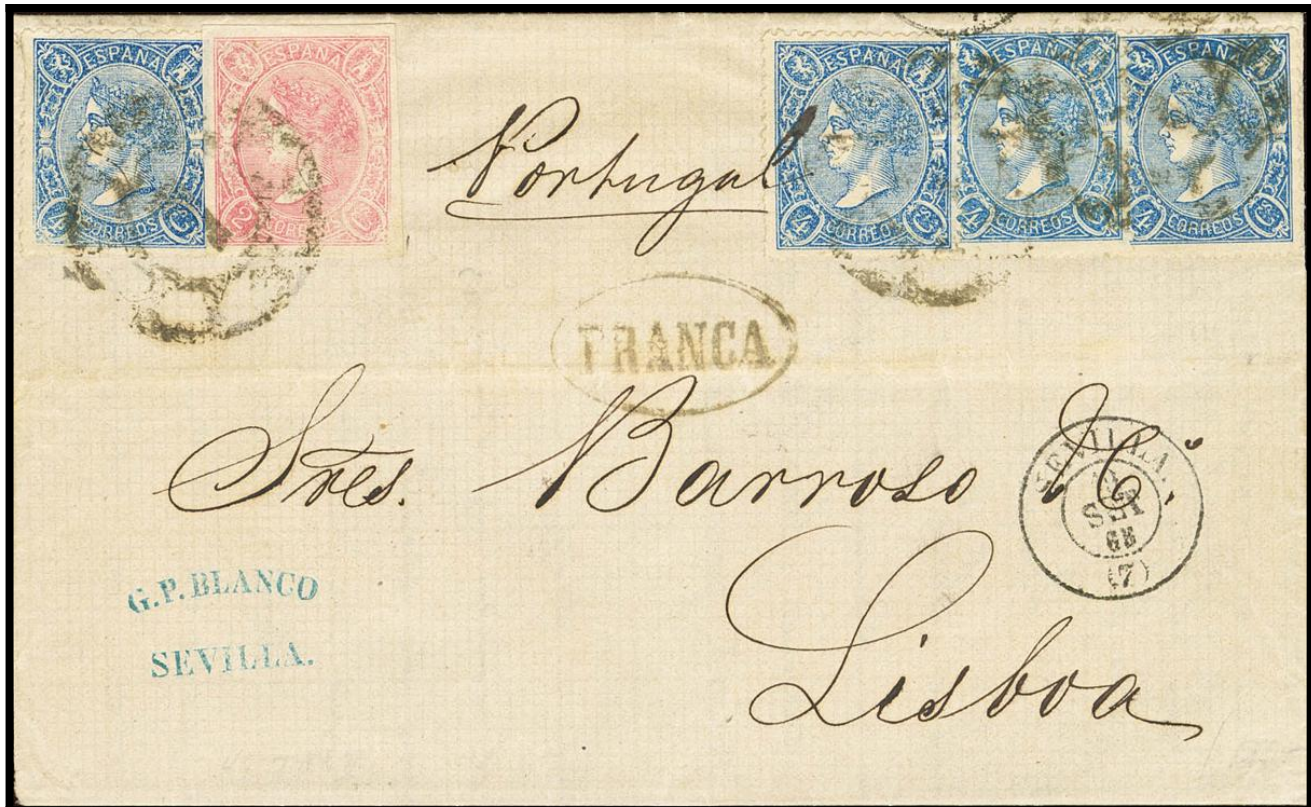 ESPAÑA
4 Cs
CORREOS
ESPAÑA
2
CORREOS
ESPAÑA
4 Cs
CORREOS
ESPAÑA
4
CORREOS
ESPAÑA
4 Cs
CORREOS
Portugal
FRANCA
Sres. Barroso y Cª.
Lisboa
SEVILLA.
SET
68
(7)
G.P. BLANCO
SEVILLA.